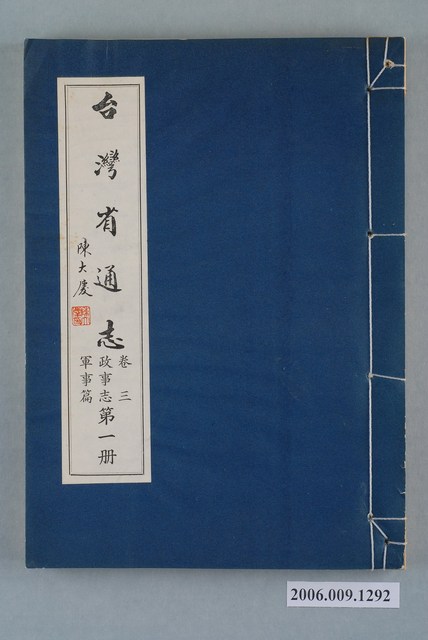 台灣省通志
陳大慶
卷三
政事志
軍事篇
第一册
2006.009.1292